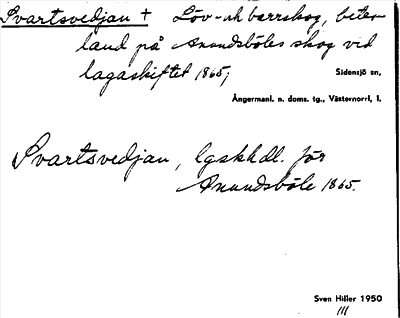 Svartsvedjan + Löv- och barrskog, betes-
land på Anundsböles skog vid
lagaskiftet 1865;
Sidensjö sn,
Ångermanl. n. doms. tg., Västernorrl, l.
Svartsvedjan, lgskhdl. för
Anundsböle 1865.
Sven Hiller 1950
III